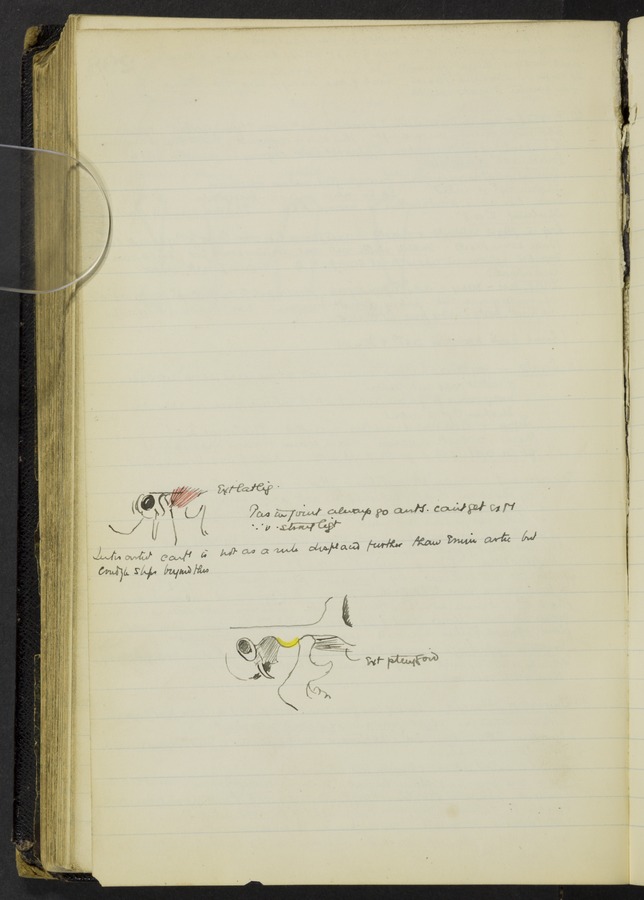 Ext lat lig.
Jaw joint always go ants. can't get
∵ v. strong ligt
Inter artic cart is not as a rule displaced further than Emin artic but
condyle slips beyond this
Ext pterygoid